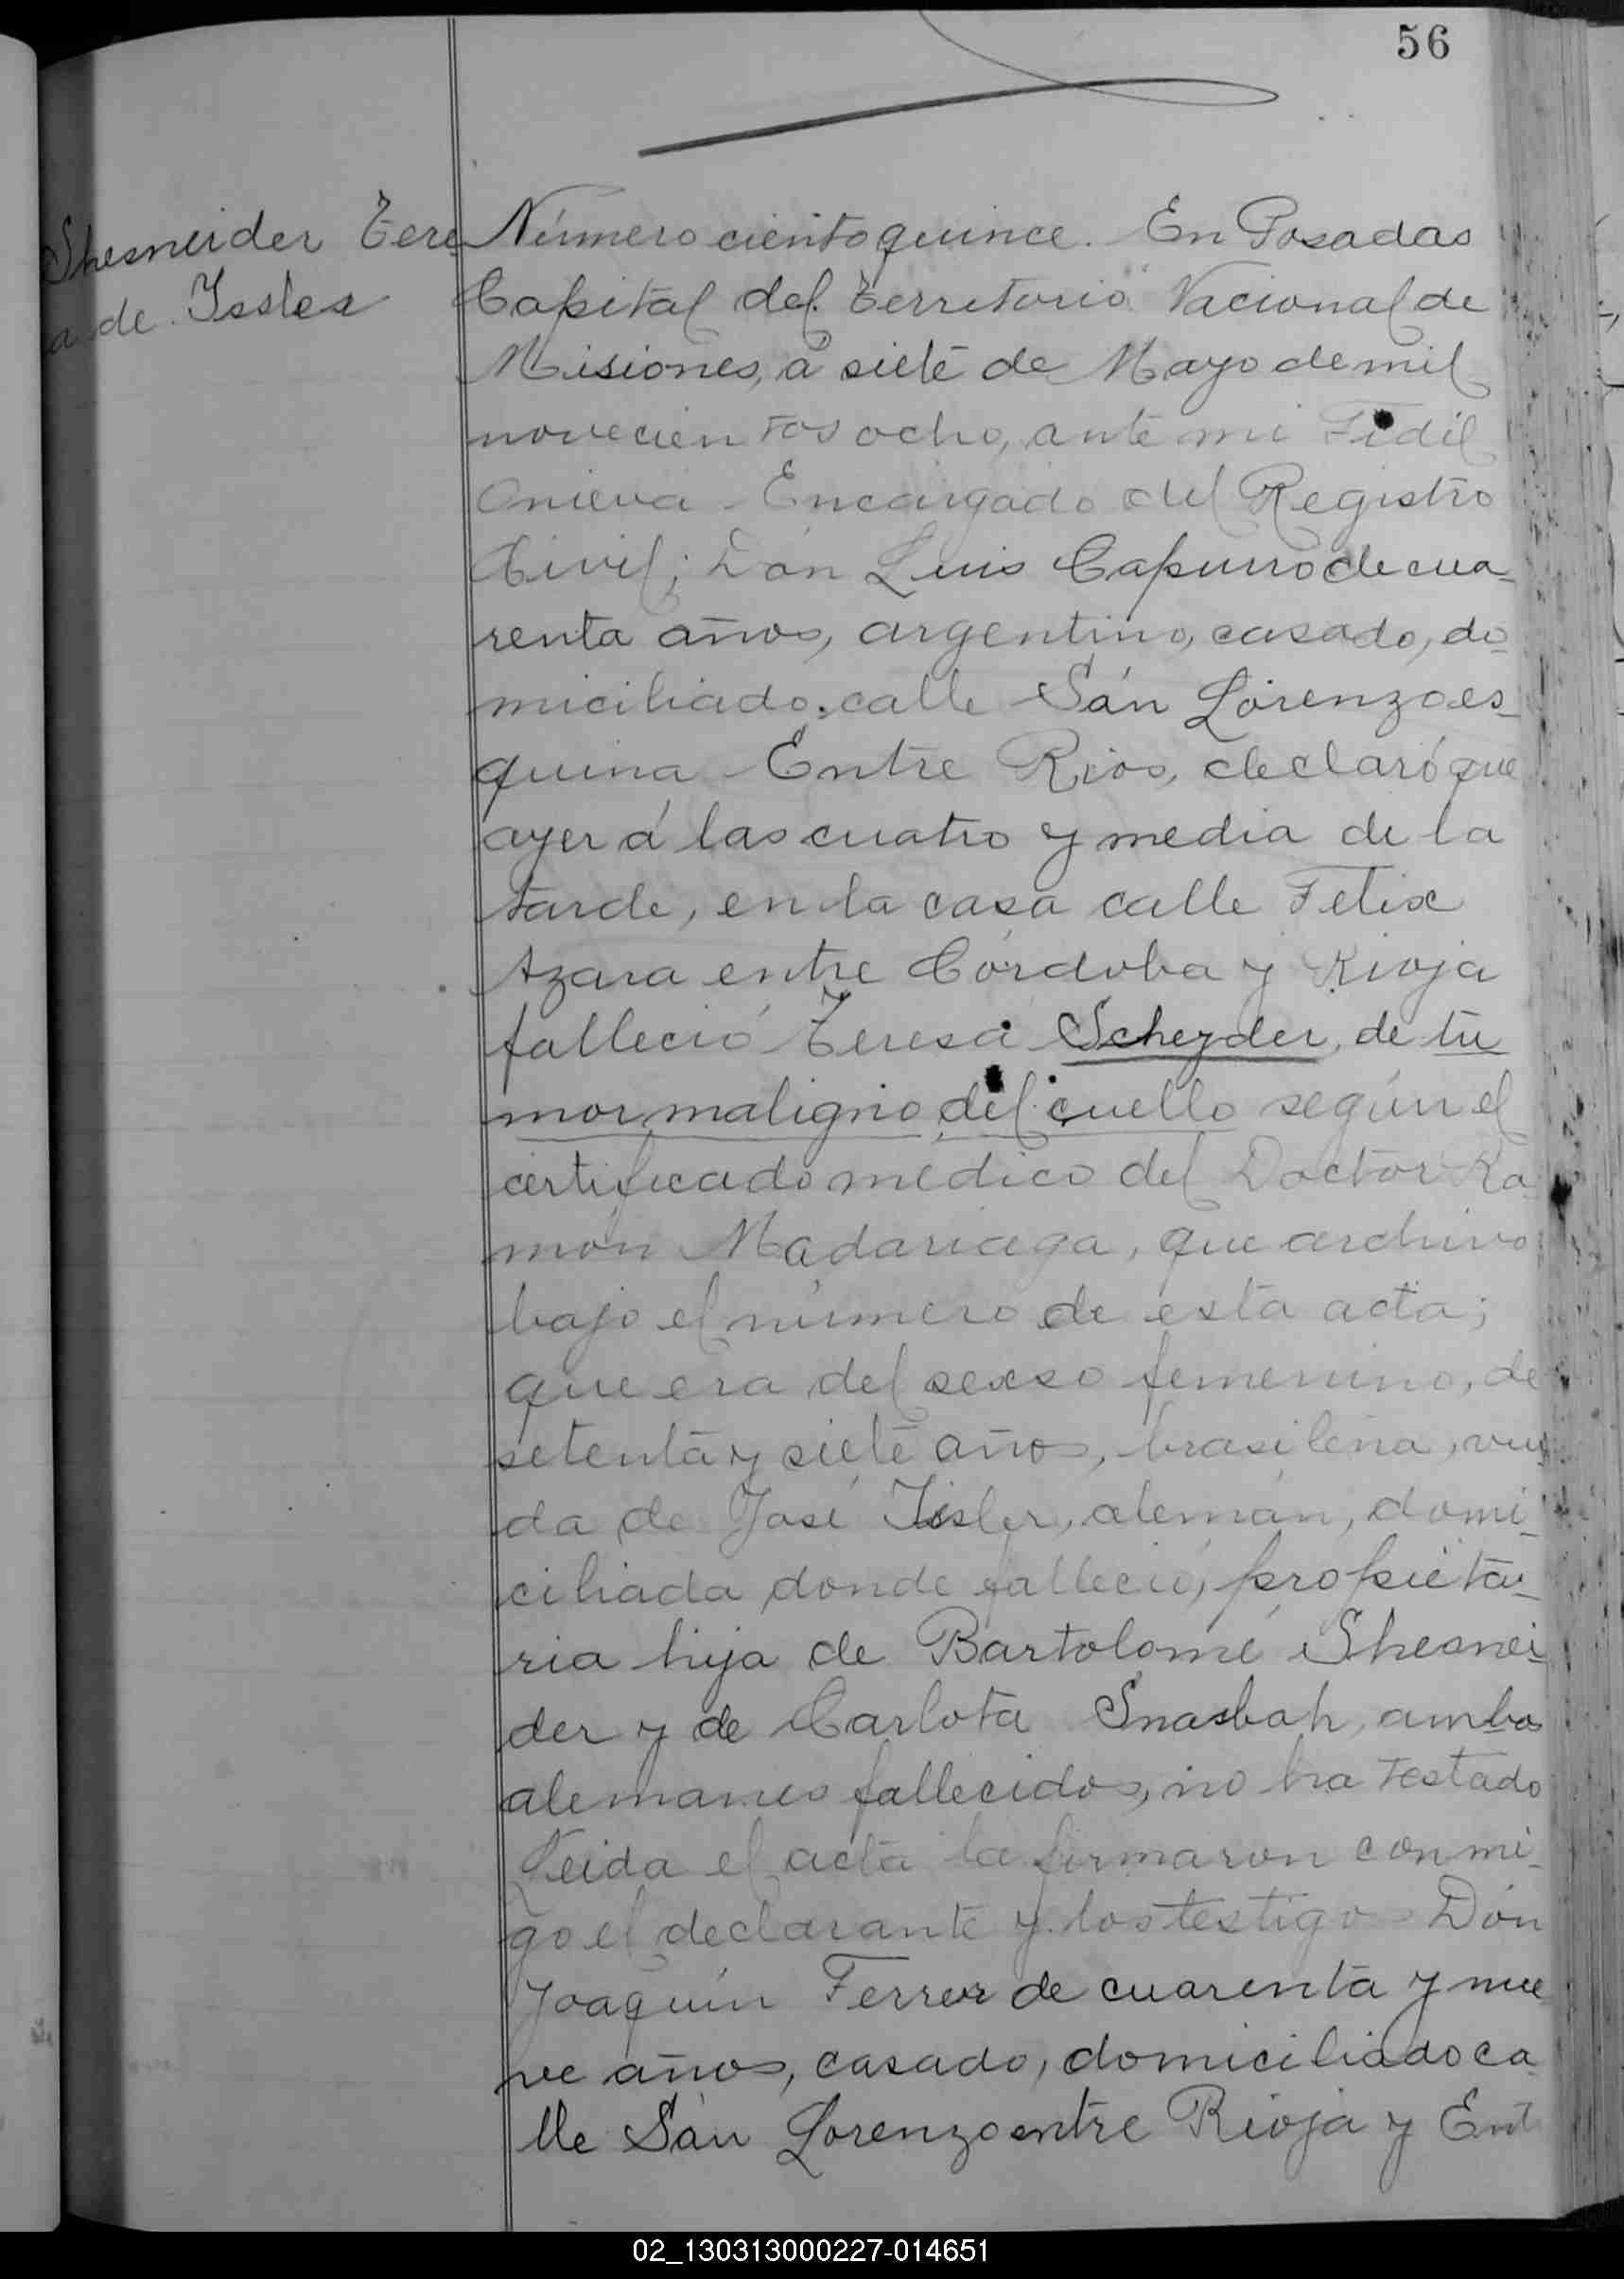 56
Shesneider Tere
a de Issler
Número ciento quince. En Posadas
Capital del territorio Nacional de
Misiones, á siete de Mayo de mil
novecientos ocho, ante mi Fidel
Onieva Encargado del Registro
Civil; Don Luis Capurro de cua-
renta años, argentino, casado, do-
miciliado calle San Lorenzo es-
quina Entre Rios, declaró que
ayer á las cuatro y media de la
tarde, en la casa calle Felix
Azara entre Córdoba y Rioja
falleció Teresa Scheyder, de tu
mor maligno del cuello según el
certificado médico del Doctor Ra-
món Madariaga, que archivo
bajo el número de esta acta;
que era del sexso femenino, de
setenta y siete años, brasileña, viu
da de José Issler, alemán, domi-
ciliada donde falleció, propieta-
ria hija de Bartolomé Shesnei-
der y de Carlota Snasbah, ambos
alemanes fallecidos, no ha testado
Leida el acta la firmaron conmi-
go el declarante y los testigo Don
Joaquín Ferrer de cuarenta y nue
ve años, casado, domiciliado ca
lle San Lorenzo entre Rioja y Ent
02_130313000227-014651